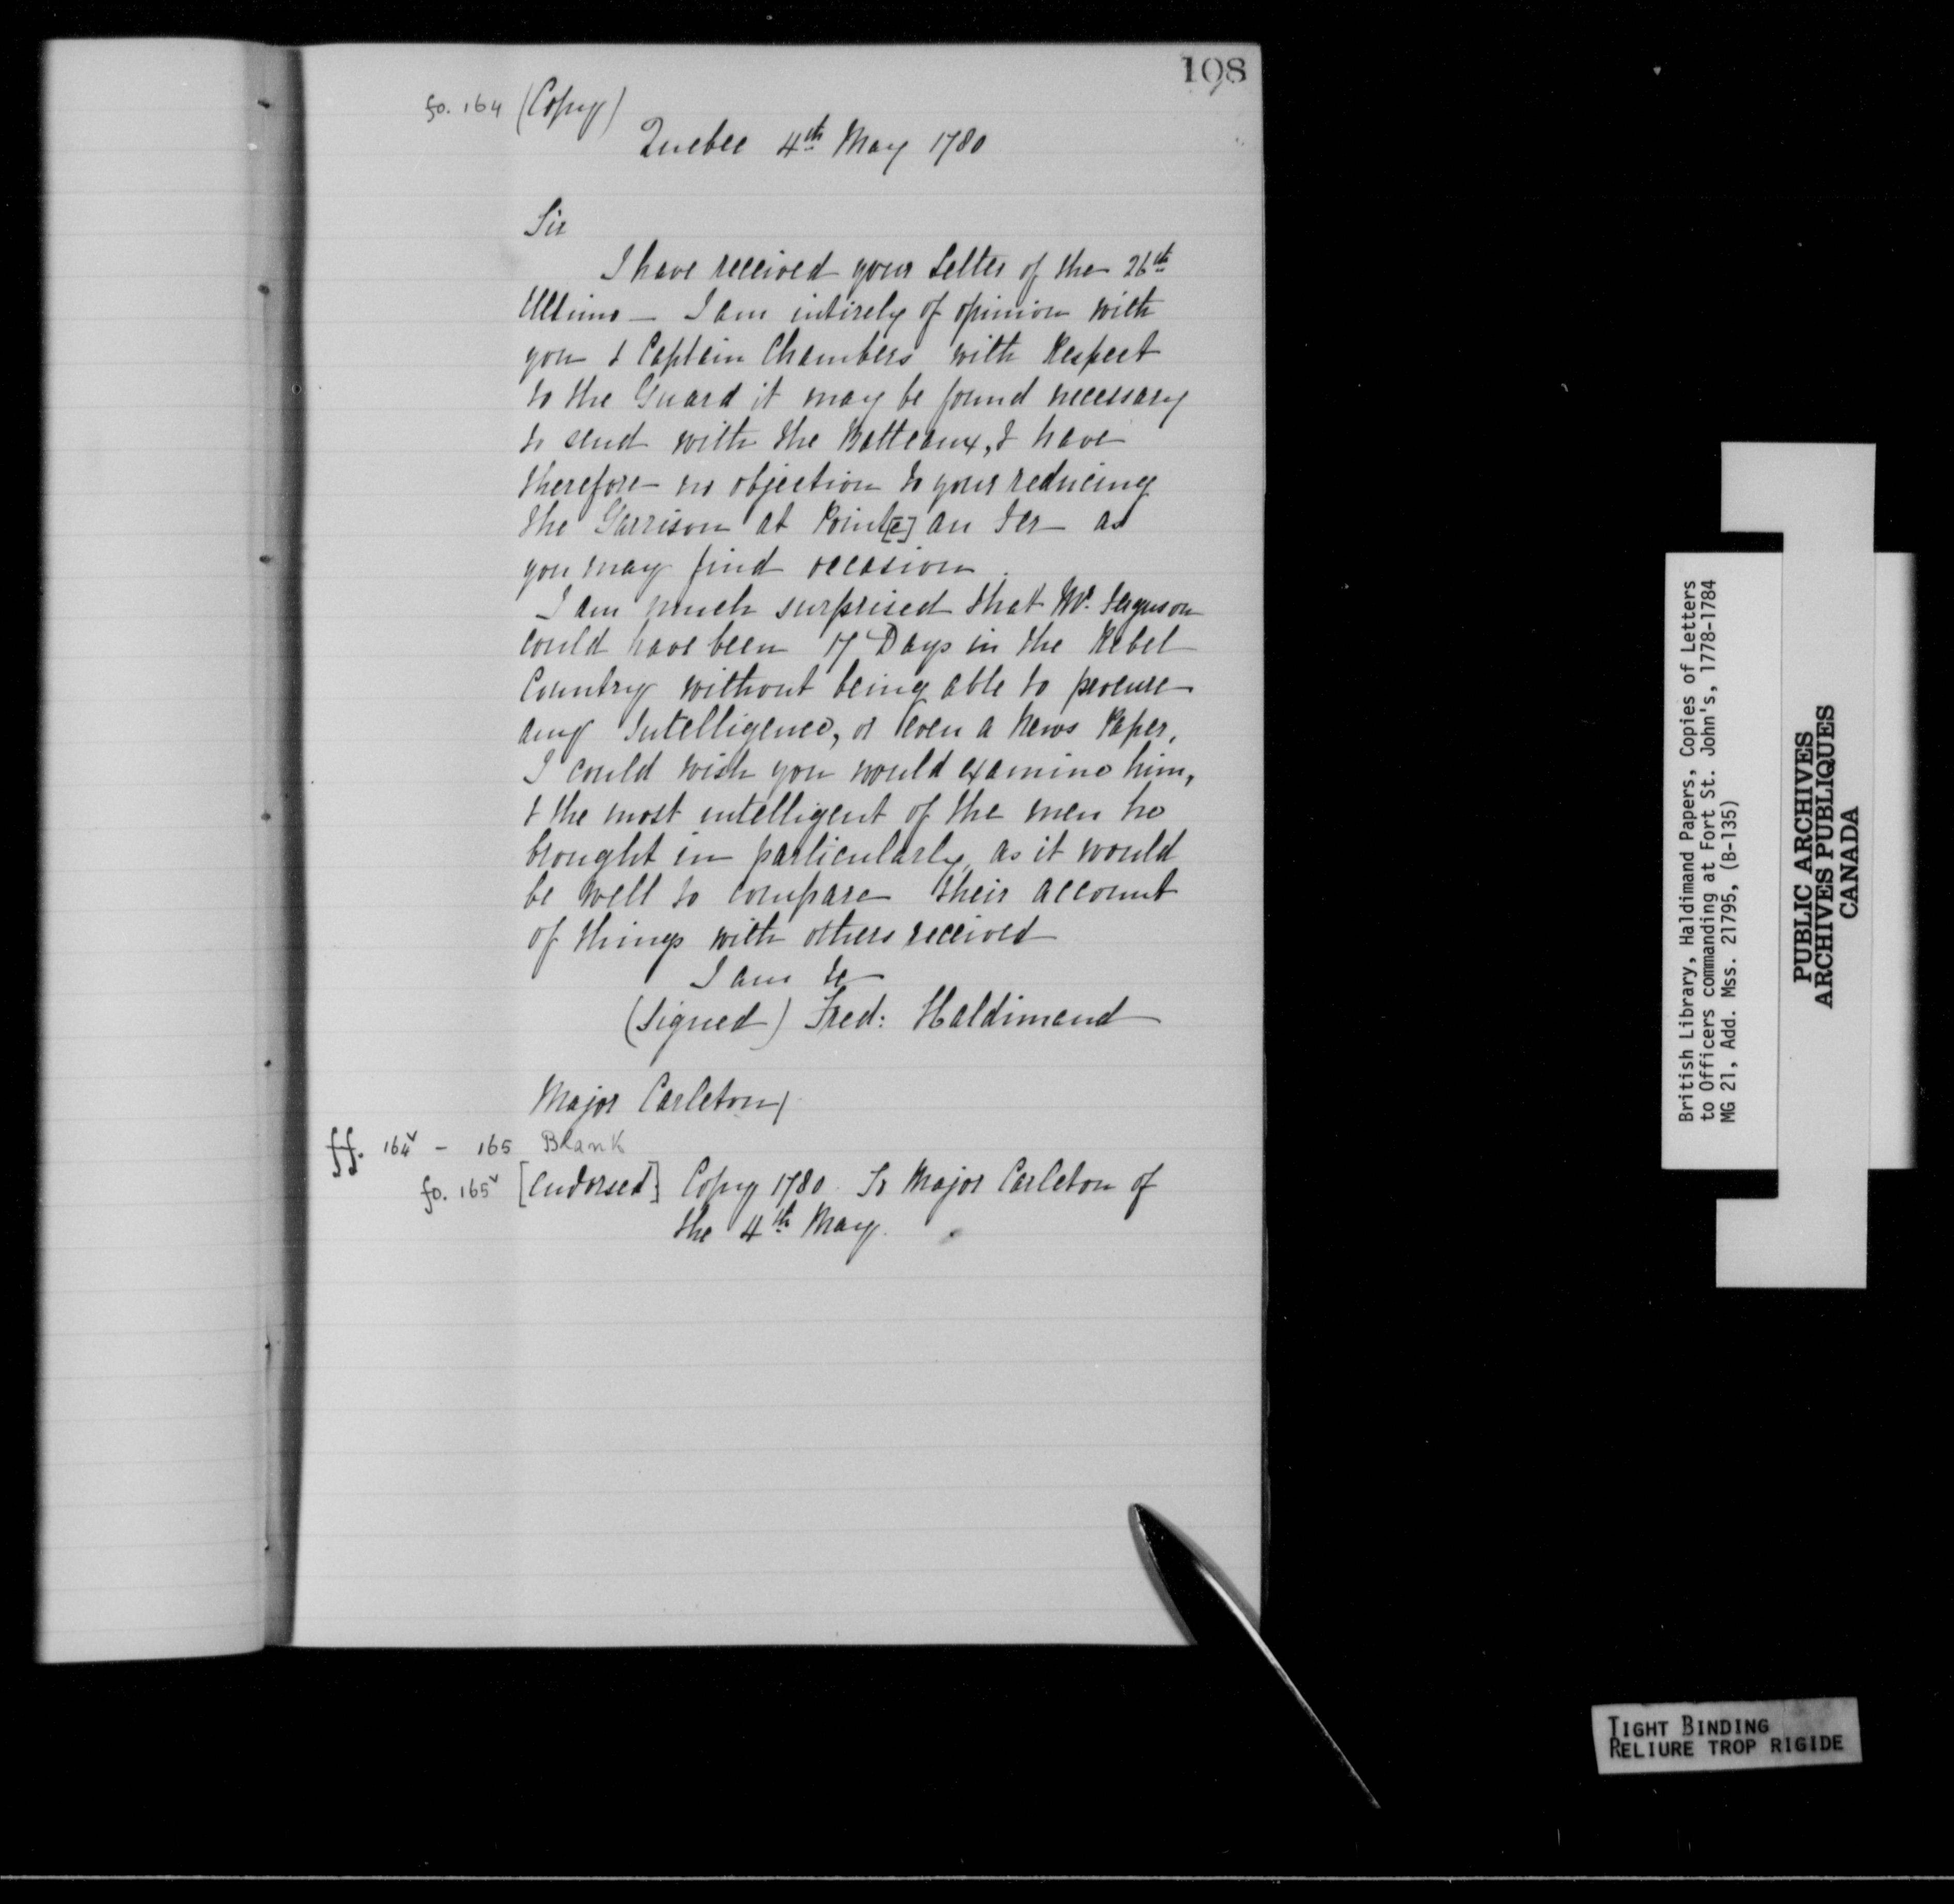 108
fo. 164 (Copy)
Quebec 4th May 1780
Sir
I have received your Letter of the 26th
Ultimo — I am intirely of opinion with
you & Captain Chambers with Respect
to the Guard it may be found necessary
to send with the Batteaux, I have
therefore no objection to your reducing
the Garrison at Point[e] au Fer — as
you may find occasion.
I am much surprised that Mr. Ferguson
could have been 17 Days in the Rebel
Country without being able to procure
any Intelligence, or even a News Paper.
I could wish you would examine him,
& the most intelligent of the men he
brought in particularly, as it would
be well to compare their account
of things with others received
I am &c
(Signed) Fred: Haldimand
Major Carleton
ff. 164v - 165 Blank
fo. 165v [Endorsed] Copy 1780 To Major Carleton of
the 4th May.
British Library, Haldimand Papers, Copies of Letters
to Officers commanding at Fort St. John's, 1778-1784
MG 21, Add. Mss. 21795, (B-135)
PUBLIC ARCHIVES
ARCHIVES PUBLIQUES
CANADA
TIGHT BINDING
RELIURE TROP RIGIDE